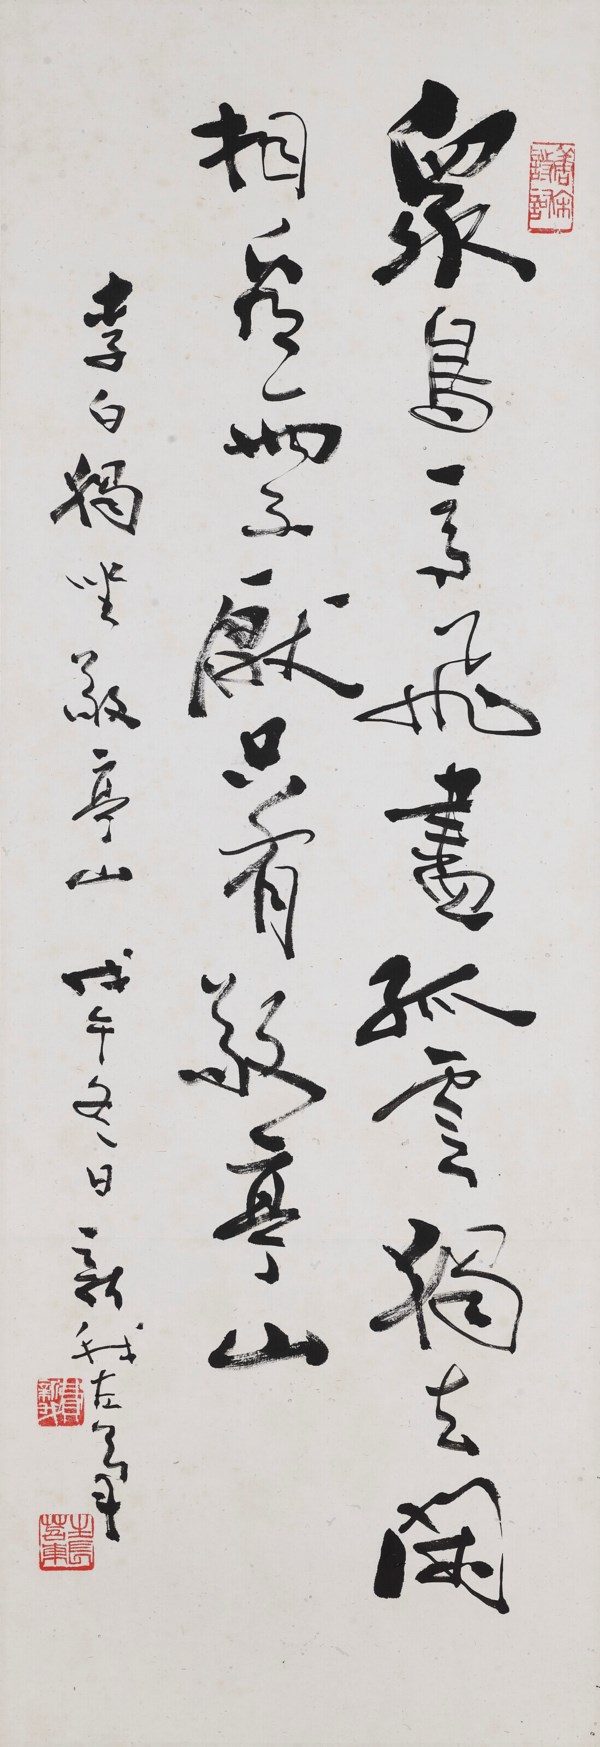 衆鳥高飛盡孤雲獨去閑
相看兩不厭只有敬亭山
李白獨坐敬亭山 戊午冬日 新我左筆
費新我
生長苕東